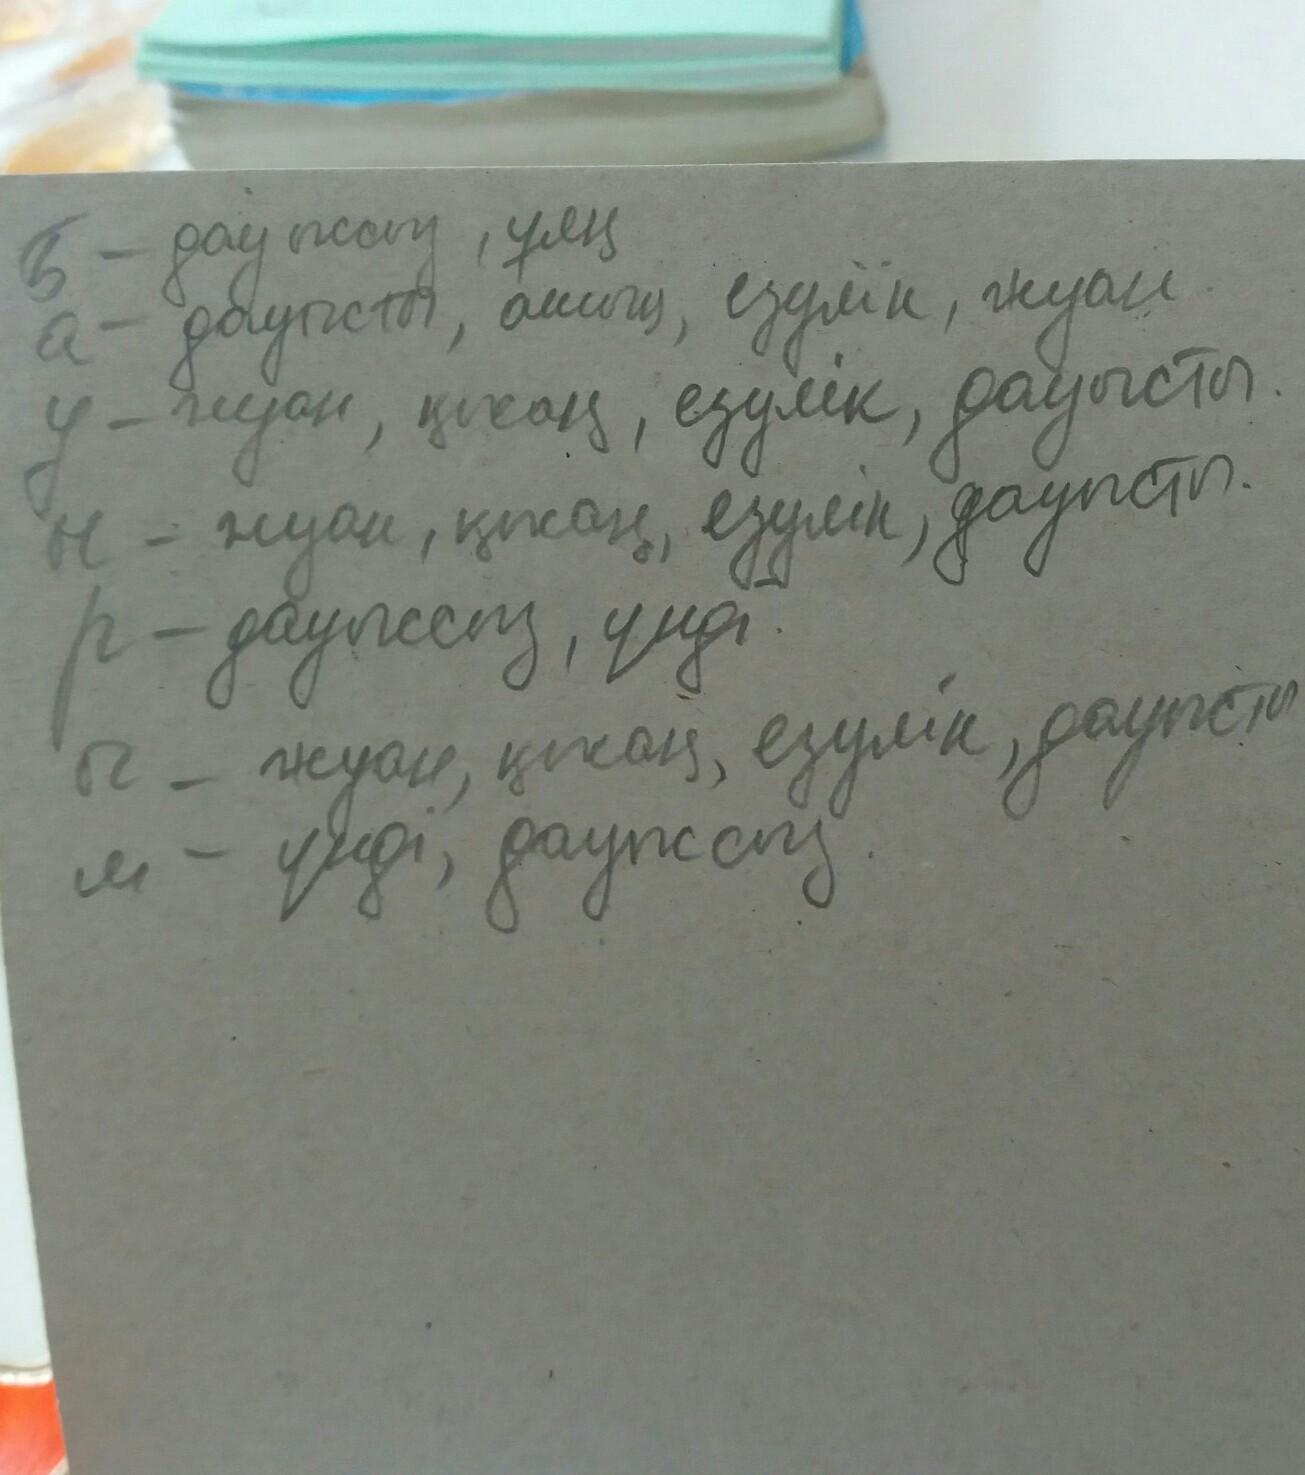 Б – дауыссыз, ұяң
а – дауысты, ашық, езулік, жуан.
у – жуан, қысаң, езулік, дауысты.
ы – жуан, қысаң, езулік, дауысты.
р – дауыссыз, үнді.
ы – жуан, қысаң, езулік, дауысты
м – үнді, дауыссыз.